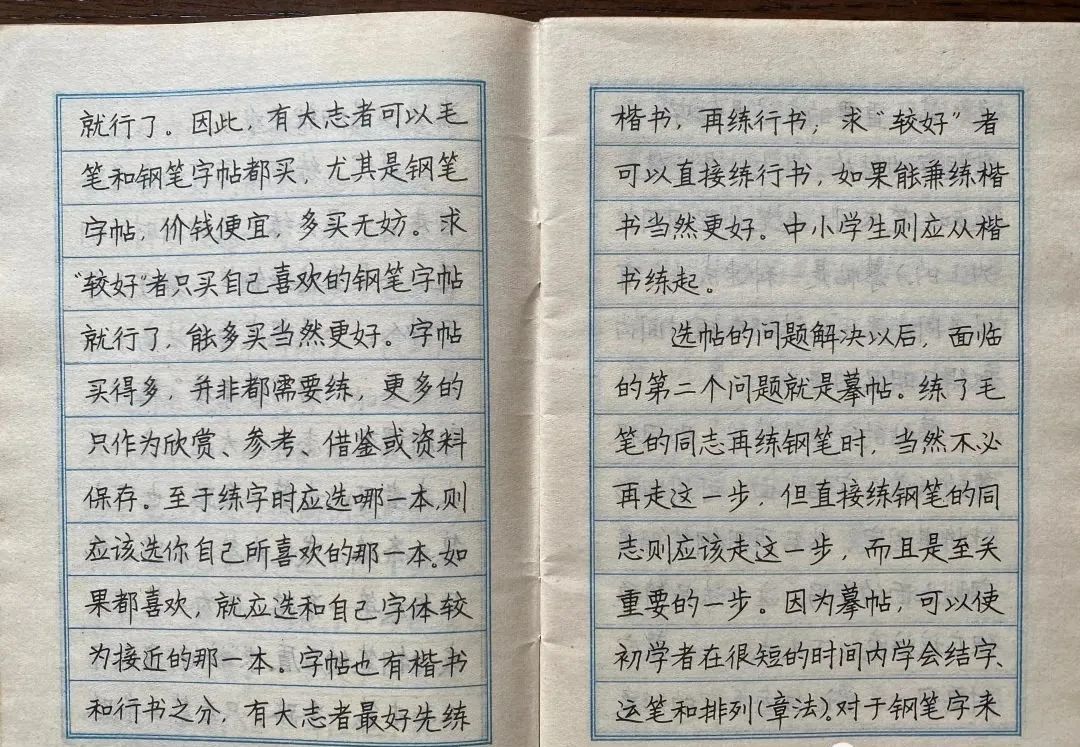 就行了。因此，有大志者可以毛
笔和钢笔字帖都买，尤其是钢笔
字帖，价钱便宜，多买无妨。求
“较好”者只买自己喜欢的钢笔字帖
就行了，能多买当然更好。字帖
买得多，并非都需要练，更多的
只作为欣赏、参考、借鉴或资料
保存。至于练字时应选哪一本，则
应该选你自己所喜欢的那一本。如
果都喜欢，就应选和自己字体较
为接近的那一本。字帖也有楷书
和行书之分，有大志者最好先练
楷书，再练行书，求“较好”者
可以直接练行书，如果能兼练楷
书当然更好。中小学生则应从楷
书练起。
选帖的问题解决以后，面临
的第二个问题就是摹帖。练了毛
笔的同志再练钢笔时，当然不必
再走这一步，但直接练钢笔的同
志则应该走这一步，而且是至关
重要的一步。因为摹帖，可以使
初学者在很短的时间内学会结字、
运笔和排列(章法)。对于钢笔字来